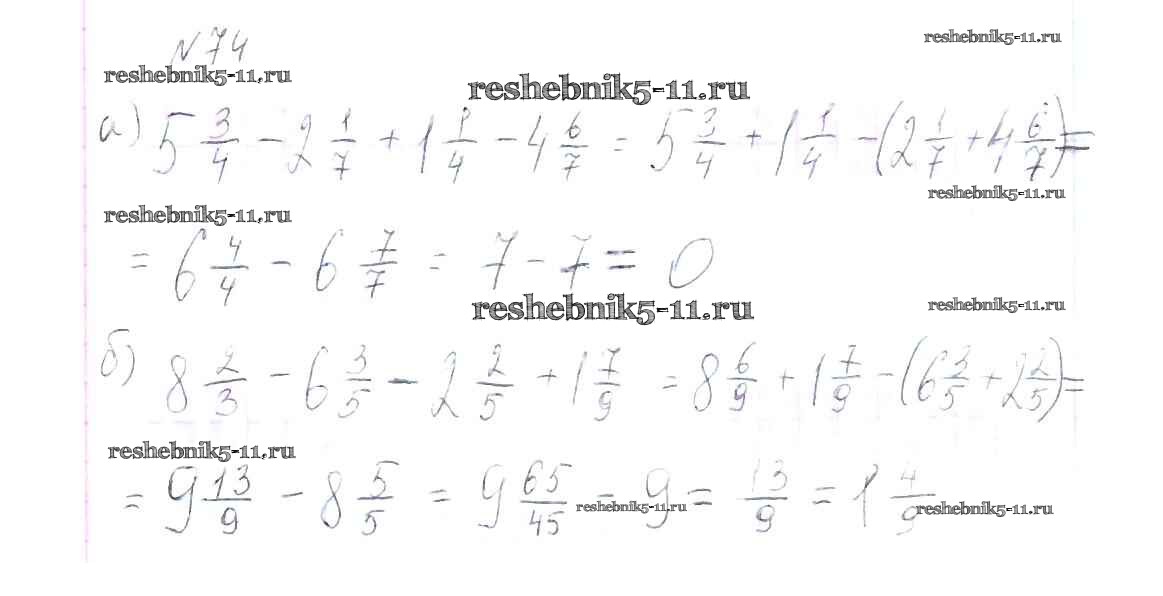 N 74
reshebnik5-11.ru
reshebnik5-11.ru
reshebnik5-11.ru
а) 5 3/4 - 2 1/7 + 1 1/4 - 4 6/7 = 5 3/4 + 1 1/4 - (2 1/7 + 4 6/7) =
reshebnik5-11.ru
reshebnik5-11.ru
= 6 4/4 - 6 7/7 = 7 - 7 = 0
reshebnik5-11.ru
reshebnik5-11.ru
б) 8 2/3 - 6 3/5 - 2 2/5 + 1 7/9 = 8 6/9 + 1 7/9 - (6 3/5 + 2 2/5) =
reshebnik5-11.ru
= 9 13/9 - 8 5/5 = 9 65/45 - 9 = 13/9 = 1 4/9
reshebnik5-11.ru
reshebnik5-11.ru